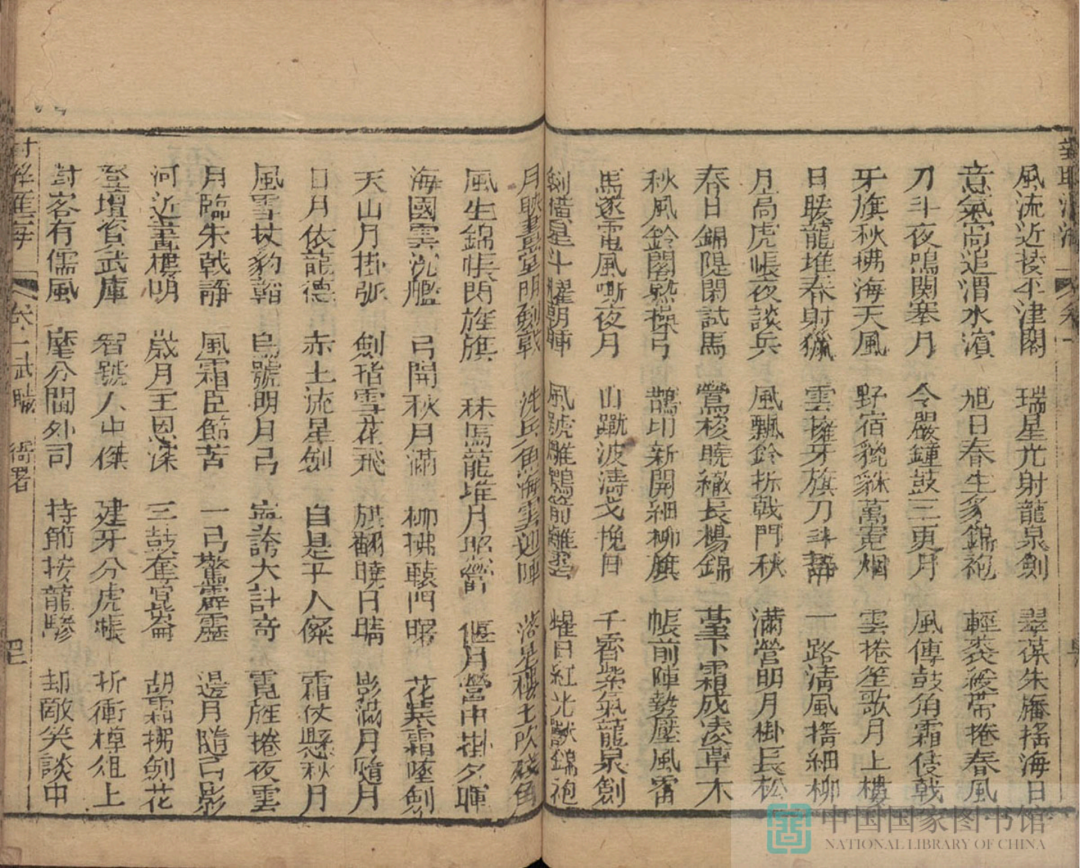 風流近接平津閣 瑞星光射龍泉劍 翠葆朱旛搖海日
意氣尚追渭水濱 旭日春生豸錦袍 輕裘緩帶捲春風
刀斗夜鳴関塞月 令嚴鐘鼓三更月 風傳鼓角霜侵戟
牙旗秋拂海天風 野宿貔貅萬竃烟 雲捲笙歌月上樓
日暖龍堆春射獵 雲擁牙旗刀斗靜 一路清風搖細柳
月高虎帳夜談兵 風飄鈴柝戟門秋 滿營明月掛長松
春日錦隄閑試馬 鶯梭曉織長楊錦 臺下霜成凌草木
秋風鈴閣熟操弓 鵲印新開細柳旗 帳前陣勢壓風雷
馬逐電風嘶夜月 山蹴波濤戈挽日 千霄紫氣龍泉劍
劍借星斗耀朝暉 風號雕鶚箭離雲 耀日紅光獸錦袍
月映畫堂明劍戟 洗兵魚海雲迎陣
風生錦帳閃旌旗 秣馬龍堆月照營 偃月營中掛夕暉
海國雲沈艦 弓開秋月滿 柳拂轅門曙 花 霜墜劍
天山月掛弧 劍 雪花飛 旗翻曉日晴 影滿月隨月
日月依龍德 赤土流星劍 自是平人傑 霜仗懸秋月
風雪拔豹韜 烏號明月弓 誇大計奇 霓旌捲夜雲
月臨朱戟靜 風霜臣節苦 一弓驚霹靂 邊月隨弓影
河近畫樓明 歲月王恩深 三鼓奪崑崙 胡霜拂劍花
登壇資武庫 智號人中傑 建牙分虎帳 折衝樽俎上
對客有儒風 麾分閫外司 持節接龍驂 却敵笑談中
卷一武職 衙署